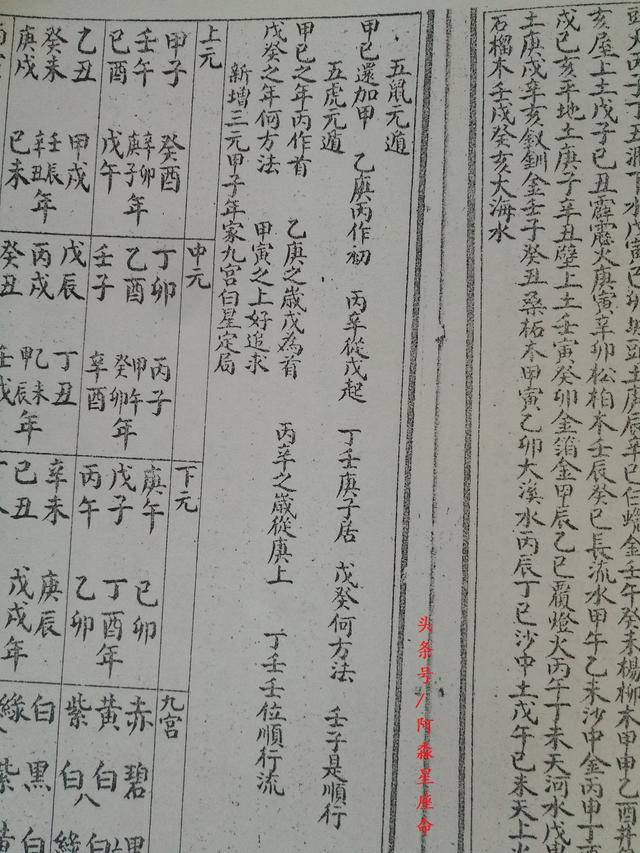 頭火丙丁丁丑澗下水戊寅已卯城頭土庚辰辛巳仁蠟金壬午癸未楊柳木甲申乙酉井
亥屋上土戊子已丑霹靂火庚寅辛卯松柏木壬辰癸巳長流水甲午乙未沙中金丙申丁
戌已亥平地土庚子辛丑壁上土壬寅癸卯金箔金甲辰乙巳覆燈火丙午丁未天河水戊申
土庚戌辛亥釵釧金壬子癸丑桑柘木甲寅乙卯大溪水丙辰丁巳沙中土戊午已未天上火
石榴木壬戌癸亥大海水
五鼠元遁
甲已還加甲 乙庚丙作初 丙辛從戊起 丁壬庚子居 戊癸何方法 壬子是順行
五虎元遁
甲已之年丙作首 乙庚之歲戊為首 丙辛之歲從庚上 丁壬壬位順行流
戊癸之年何方法 甲寅之上好追求
新增三元甲子年家九宮白星定局
上元 中元 下元 九宮
甲子 癸酉 丁卯 丙子 庚午 已卯 赤碧
壬午 辛卯 庚子年 乙酉 甲午 癸卯年 戊子 丁酉年 黃白白
已酉 戊午 壬子 辛酉 丙午 乙卯 紫白八
乙丑 甲戌 戊辰 丁丑 辛未 庚辰 白黑白
癸未 壬辰 辛丑年 丙戌 乙未 甲辰年 已丑 戊戌年 綠紫黃
庚戌 已未 癸丑 壬戌
头条号/阿淼星座命